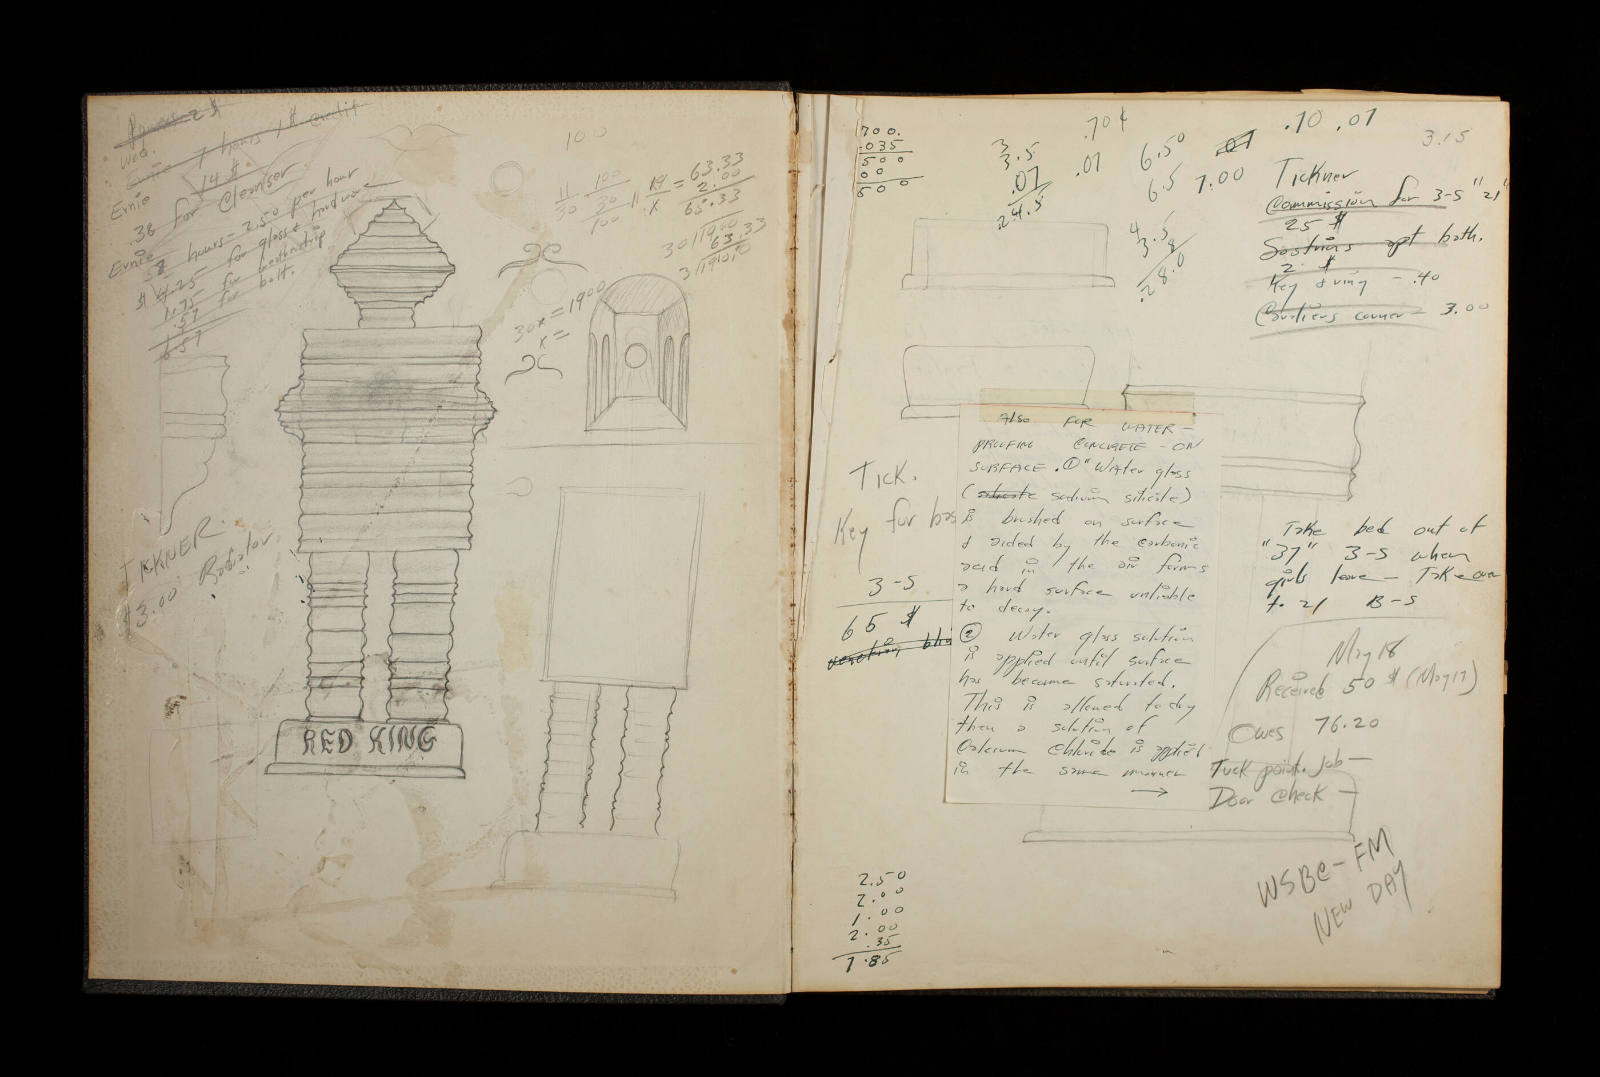 2 $
Wed.
Ernie 7 hours 1 $ credit
Ernie 14 $
.38 for Cleanser
Ernie 8 hours - 2.50 per hour
5
$ 4.25 for glass & hardware
1.75 for weatherstrip
.57 for bolt.
6 57
100
11 100
30 30
100
11 19 = 63.33
.x 2.00
65.33
30/1900
63.33
3/1910.0
30x = 1900
x =
TICKNER
$ 3.00 Radiator
RED KING
700.
.035
500
00
500
3
3.5
.07
24.5
.70¢
.07
6.50
6.5
.07
7.00
4
3.5
8
.28.0
.10 .07
3.15
Tickner
Commission for 3-S "21"
25 $
apt bath.
2. $
Key & ring - .40
corner 3.00
Also FOR WATER-
PROOFING CONCRETE - ON
SURFACE. ① "Water glass
(silicate sodium silicate)
is brushed on surface
& aided by the carbonic
acid in the air forms
a hard surface unliable
to decay.
② Water glass solution
is applied until surface
has become saturated.
This is allowed to dry
then a solution of
Calcium Chloride is applied
in the same manner
→
Tick.
Key for bas
3-S
65 $
Take bed out of
"37" 3-S when
girls leave - Take over
to 21 B-S
May 18
Received 50 $ (May 17)
Owes 76.20
Tuck point. Job -
Door Check -
WSBC-FM
NEW DAY
2.50
2.00
1.00
2.00
.35
7.85